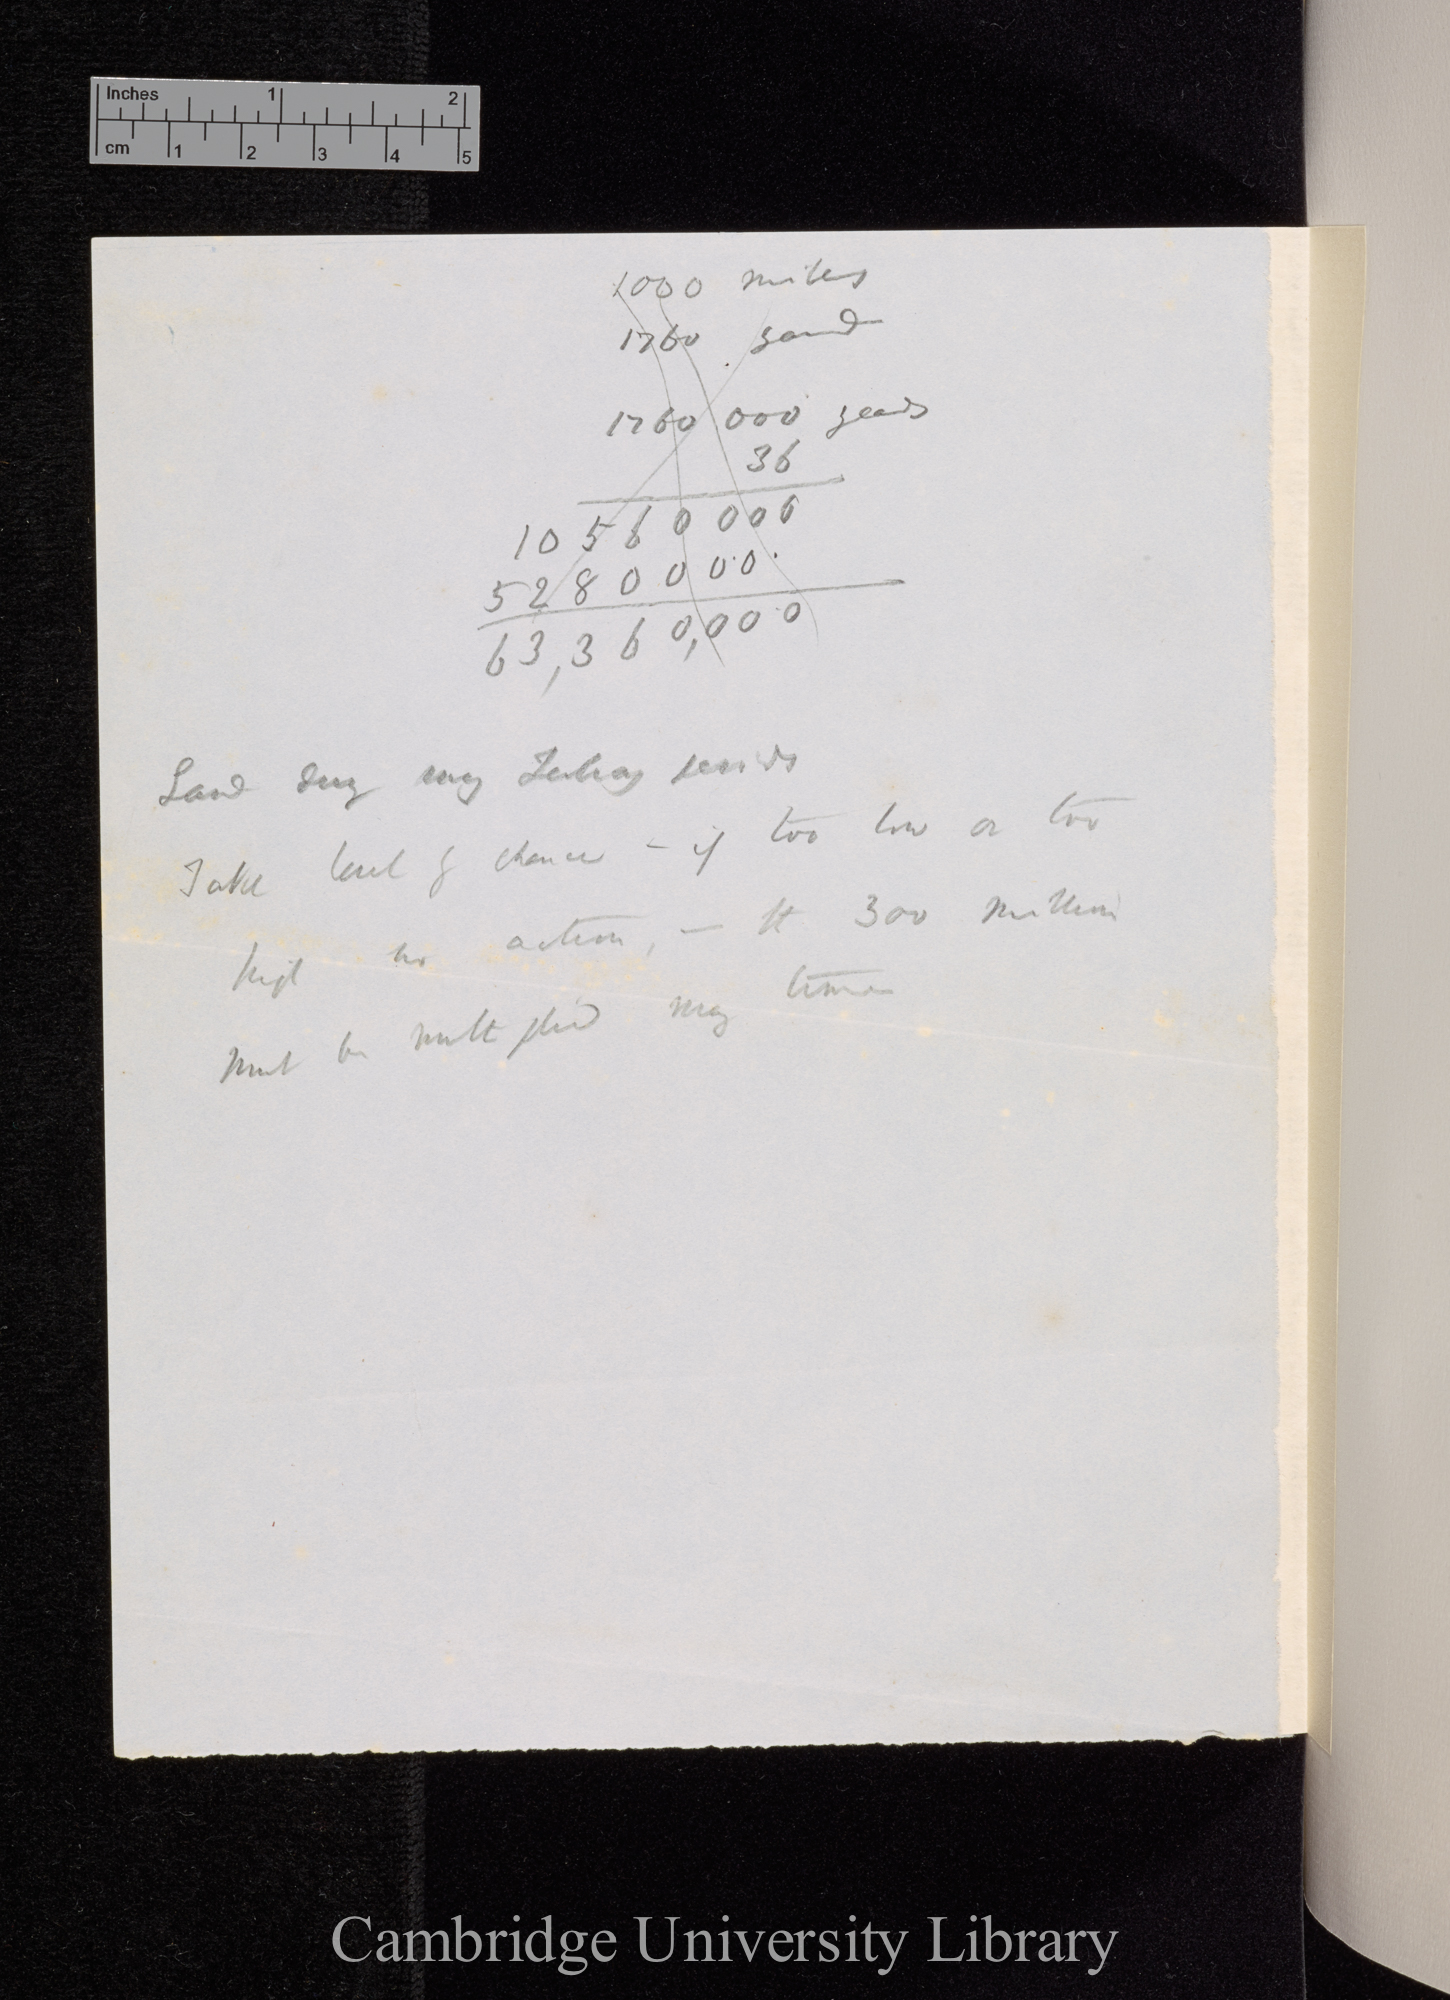 Inches 1 2
cm 1 2 3 4 5
1000 miles
1760 yard
1760 000 yards
36
10560000
5280000.
63,360,000
Land dug many Tertiary periods
Take level of chance – if too low or too
high no action, – It 300 million
must be multiplied many times
Cambridge University Library